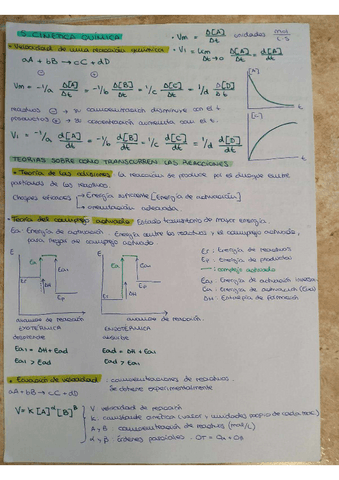 5. CINÉTICA QUÍMICA
• Vm = Δ[A] / Δt unidades mol / L·S
• Velocidad de una reacción química
• Vi = lim Δt→0 Δ[A] / Δt = d[A] / dt
aA + bB → cC + dD
Vm = -1/a Δ[A] / Δt = -1/b Δ[B] / Δt = 1/c Δ[C] / Δt = 1/d Δ[D] / Δt
[A]
t
reactivos ⊖ → su concentración disminuye con el t.
productos ⊕ → su concentración aumenta con el t.
[C]
t
Vi = -1/a d[A] / dt = -1/b d[B] / dt = 1/c d[C] / dt = 1/d d[D] / dt
TEORÍAS SOBRE COMO TRANSCURREN LAS REACCIONES
• Teoría de las colisiones: la reacción se produce por el choque entre
partículas de los reactivos.
Choques eficaces → Energía suficiente [Energía de activación]
→ orientación adecuada
• Teoría del complejo activado: Estado transitorio de mayor energía.
Ea: Energía de activación Energía entre los reactivos y el complejo activado,
para llegar al complejo activado
E
Er
Ea
Ep
ΔH
avance de reacción
EXOTÉRMICA
desprende
Eai = ΔH + Ead
Eai > Ead
E
Ep
Er
ΔH
avance de reacción
ENDOTÉRMICA
absorbe
Ead = ΔH + Eai
Ead > Eai
Er: Energía de reactivos
Ep: Energía de productos
: complejo activado
Eai: Energía de activación inversa
Ea: Energía de activación
ΔH: Entalpía de formación
• Ecuación de velocidad: concentraciones de reactivos.
Se obtiene experimentalmente
aA + bB → cC + dD
V = K [A]^α [B]^β
V: velocidad de reacción
K: constante cinética (valor y unidades propio de cada reac.)
A y B: concentración de reactivos (mol/L)
α y β: órdenes parciales. OT = OA + OB